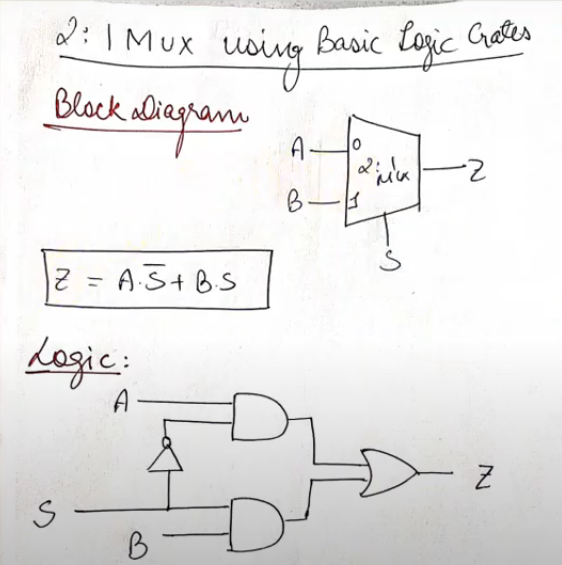 2:1 Mux using Basic Logic Gates
Block Diagram
A
0
2:1
Mux
Z
B
1
S
Z = A.S̅ + B.S
Logic:
A
Z
S
B